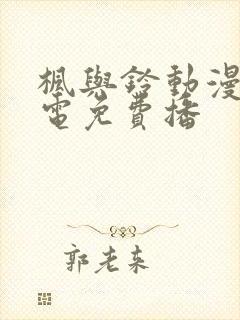 楓與鈴動漫
電免費播
郭老来